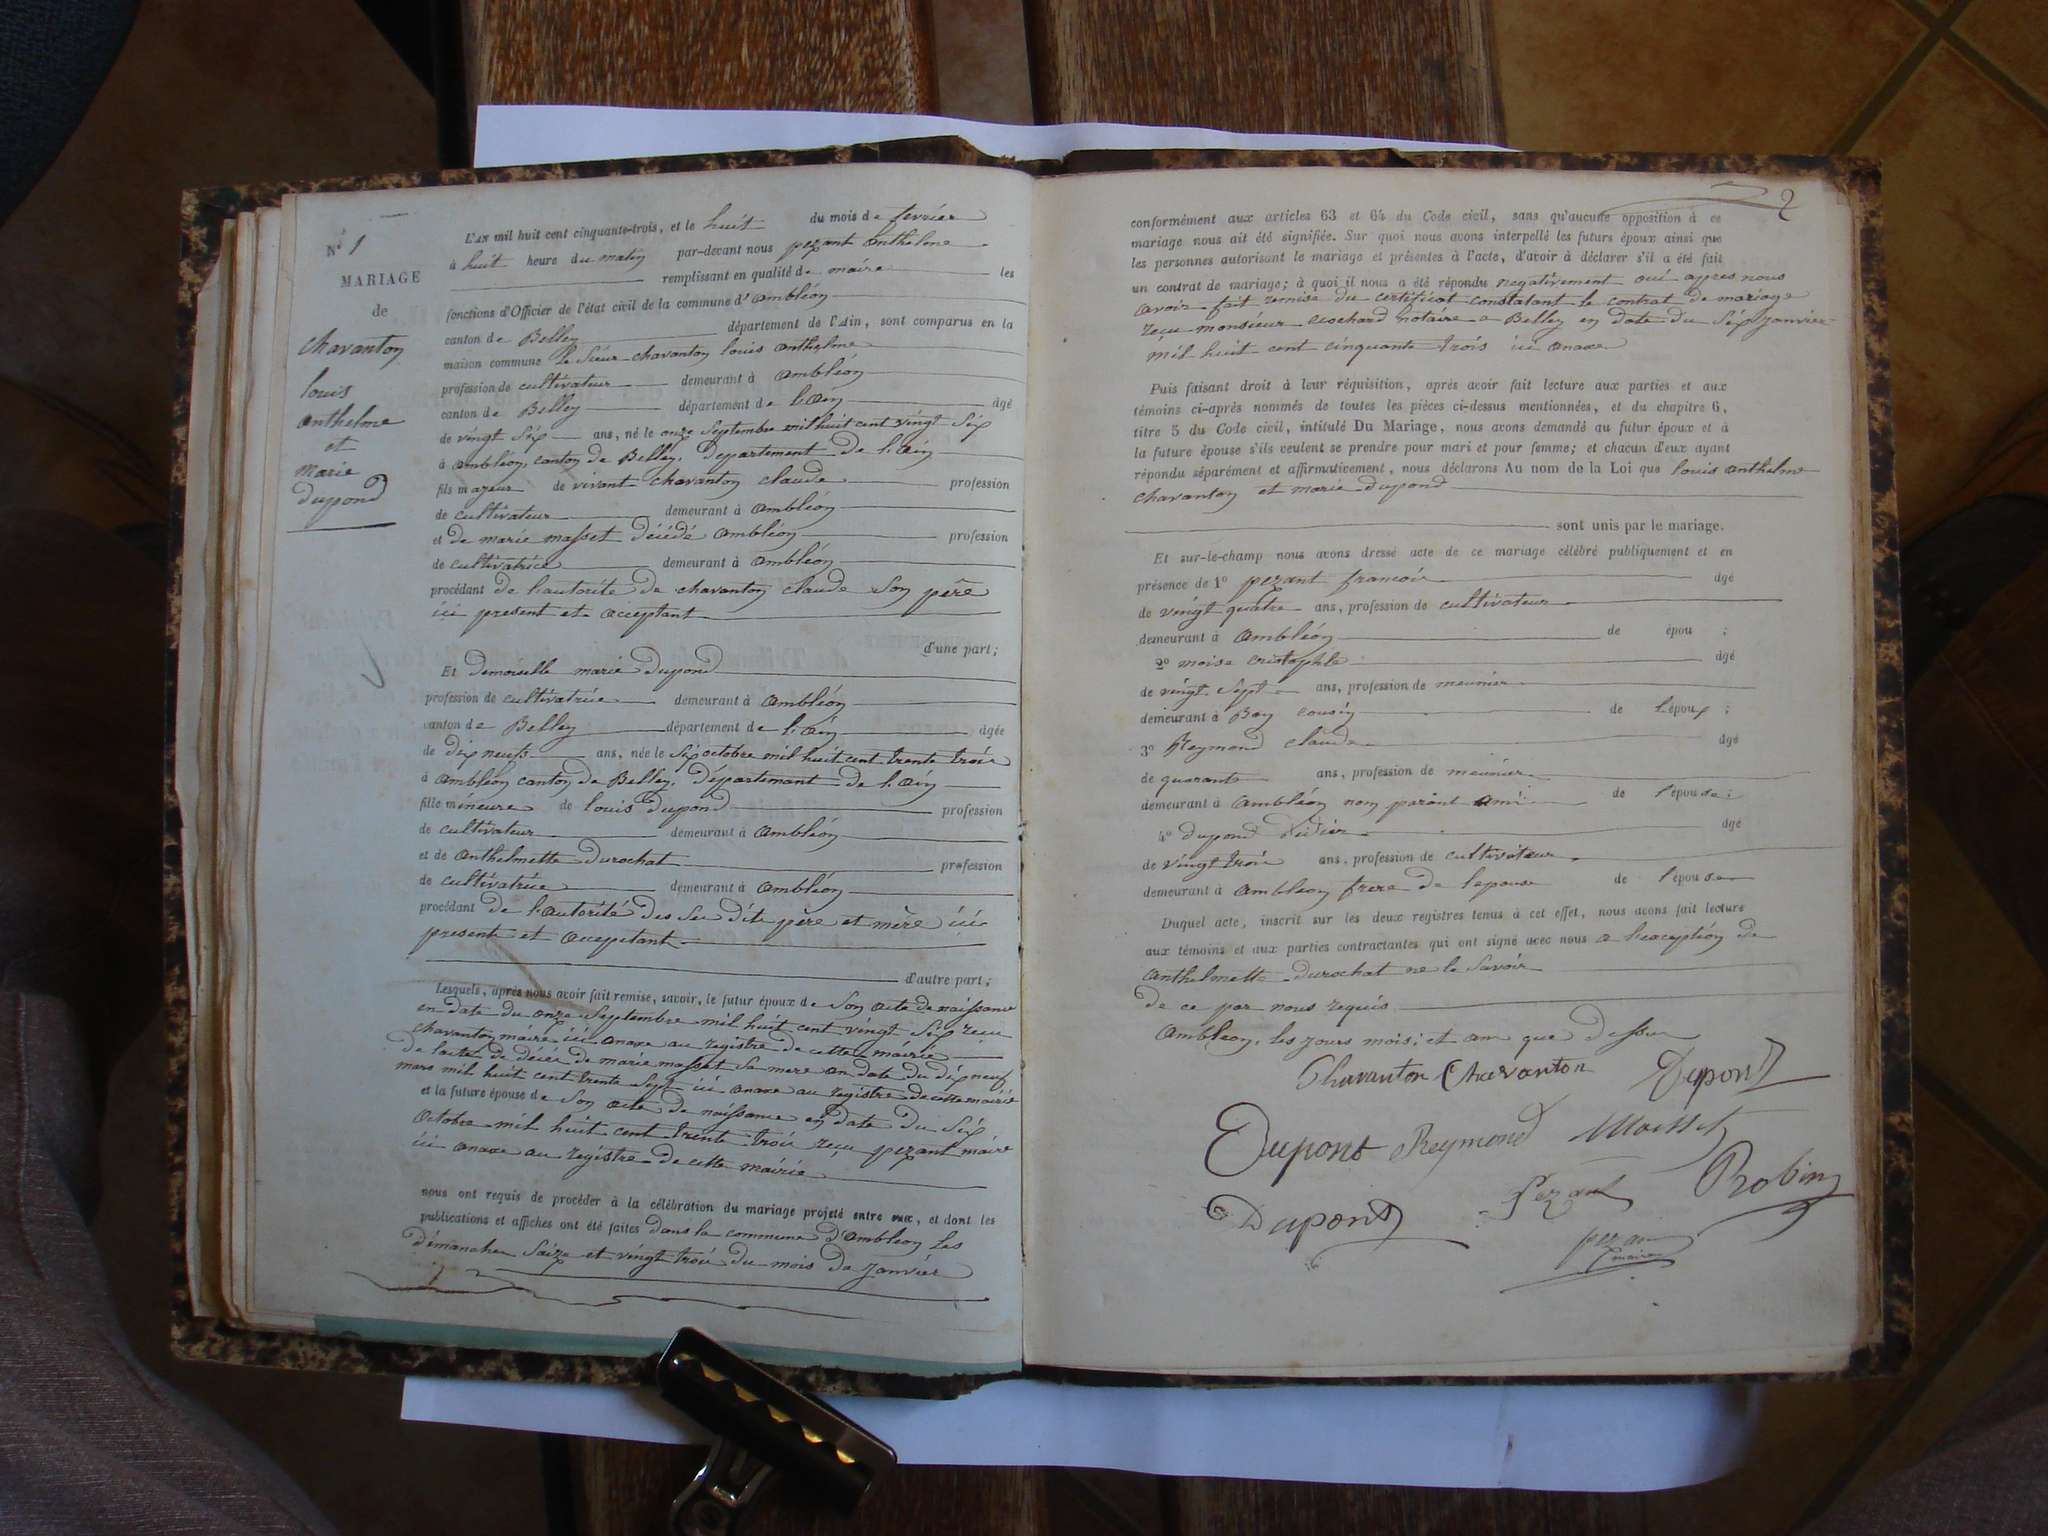 N° 1
MARIAGE
de
chavanton
louis
anthelme
et
marie
dupond
L'AN mil huit cent cinquante-trois, et le huit du mois de fevrier
à huit heure du matin par-devant nous pezant anthelme
remplissant en qualité de maire les
fonctions d'Officier de l'état civil de la commune d'ambléon
canton de Belley département de l'Ain, sont comparus en la
maison commune le sieur chavanton louis anthelme
profession de cultivateur demeurant à ambléon
canton de Belley département de l'ain âgé
de vingt six ans, né le onze septembre mil huit cent vingt six
à ambléon, canton de Belley, département de l'ain
fils majeur de vivant chavanton claude profession
de cultivateur demeurant à ambléon
et de marie masset décédé ambléon profession
de cultivatrice demeurant à ambléon
procédant de l'autorité de chavanton claude son père
ici present et acceptant
d'une part;
Et demoiselle marie dupond
profession de cultivatrice demeurant à ambléon
canton de Belley département de l'ain âgée
de dix neufs ans, née le six octobre mil huit cent trente trois
à ambléon canton de Belley, département de l'ain
fille mineure de louis dupond profession
de cultivateur demeurant à ambléon
et de anthelmette durochat profession
de cultivatrice demeurant à ambléon
procédant de l'autorité des su dits père et mère ici
presents et acceptant
d'autre part;
Lesquels, après nous avoir fait remise, savoir, le futur époux de son acte de naissance
en date du onze septembre mil huit cent vingt six reçu
chavanton maire ici anaxe au registre de cette mairie
de l'acte de décès de marie masset sa mere en date du dix neuf
mars mil huit cent trente sept ici anaxe au registre de cette mairie
et la future épouse de son acte de naissance en date du six
octobre mil huit cent trente trois reçu pezant maire
ici anaxe au registre de cette mairie
nous ont requis de procéder à la célébration du mariage projeté entre eux, et dont les
publications et affiches ont été faites dans la commune d'ambléon les
dimanches saize et vingt trois du mois de janvier
2
conformément aux articles 63 et 64 du Code civil, sans qu'aucune opposition à ce
mariage nous ait été signifiée. Sur quoi nous avons interpellé les futurs époux ainsi que
les personnes autorisant le mariage et présentes à l'acte, d'avoir à déclarer s'il a été fait
un contrat de mariage; à quoi il nous a été répondu negativement oui apres nous
avoir fait remise du certificat constatant le contrat de mariage
reçu monsieur cochard notaire a Belley en date du six janvier
mil huit cent cinquante trois ici anaxe
Puis faisant droit à leur réquisition, après avoir fait lecture aux parties et aux
témoins ci-après nommés de toutes les pièces ci-dessus mentionnées, et du chapitre 6,
titre 5 du Code civil, intitulé Du Mariage, nous avons demandé au futur époux et à
la future épouse s'ils veulent se prendre pour mari et pour femme; et chacun d'eux ayant
répondu séparément et affirmativement, nous déclarons Au nom de la Loi que louis anthelme
chavanton et marie dupond
sont unis par le mariage.
Et sur-le-champ nous avons dressé acte de ce mariage célébré publiquement et en
présence de 1° pezant francois âgé
de vingt quatre ans, profession de cultivateur
demeurant à ambléon de épou ;
2° moise cristophle âgé
de vingt sept ans, profession de meunier
demeurant à Bon cousin de l'époux ;
3° Reymond claude âgé
de quarante ans, profession de meunier
demeurant à ambléon non parànt ami de l'épouse ;
4° dupond didier âgé
de vingt trois ans, profession de cultivateur
demeurant à ambléon frere de lepouse de l'épouse
Duquel acte, inscrit sur les deux registres tenus à cet effet, nous avons fait lecture
aux témoins et aux parties contractantes qui ont signé avec nous a l'exception de
anthelmette durochat ne le savoir
de ce par nous requis
ambléon, les jours mois et an que dessus
Chavanton Chavanton Dupond
Dupont Reymond Moisset
Dupond Pezant Robin
pezant
maire